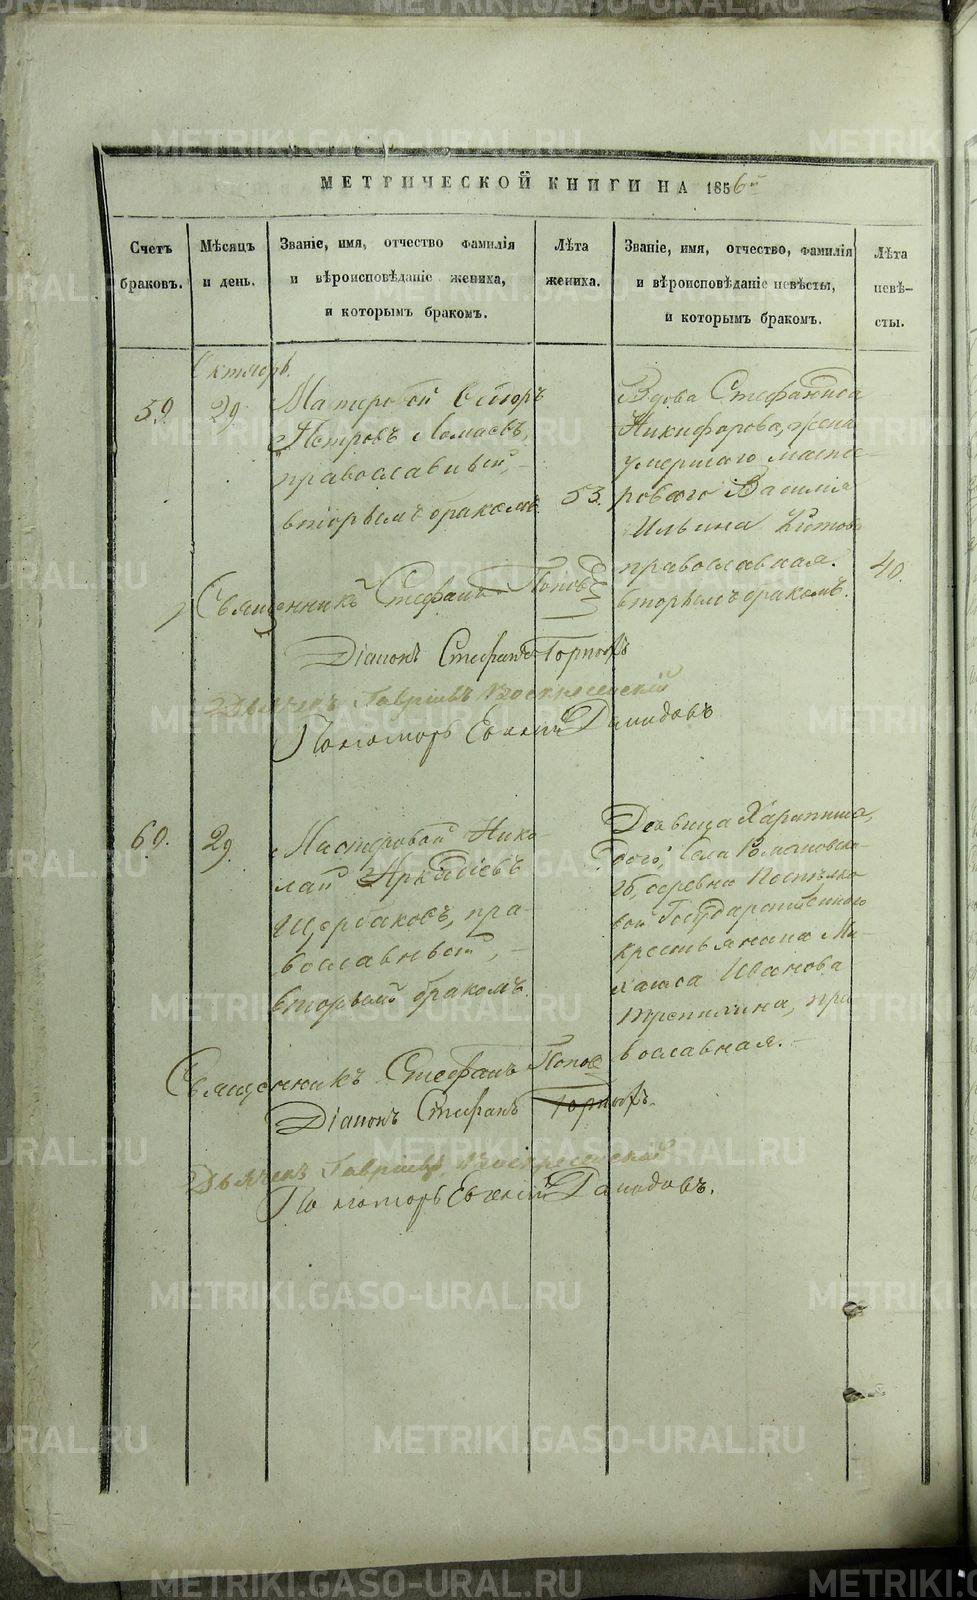 МЕТРИЧЕСКОЙ КНИГИ НА 1856й
Счетъ
браковъ.
Мѣсяцъ
и день.
Званіе, имя, отчество фамилія
и вѣроисповѣданіе жениха,
и которымъ бракомъ.
Лѣта
жениха.
Званіе, имя, отчество, фамилія
и вѣроисповѣданіе невѣсты,
и которымъ бракомъ.
Лѣта
невѣ-
сты.
Октябрь.
59.
29.
Петровъ
православный,
вторымъ бракомъ
53.
Вдова Стефанида
Никифорова, жена
умершаго масте-
роваго Василія
Ильина
православная.
вторымъ бракомъ.
40.
Священникъ Стефанъ Поповъ
Діаконъ Стефанъ
Дьячекъ Гавріилъ Воскресенскій
Пономарь Евгеній Давидовъ
60.
29.
Мастеровой Нико-
лай Аркадіевъ
Щербаковъ, пра-
вославный,
вторымъ бракомъ.
Дѣвица
села Романовска-
го, деревни
Государственнаго
крестьянина Ми-
Иванова
пра
вославная.
Священникъ Стефанъ Поповъ
Діаконъ Стефанъ
Дьячекъ Гавріилъ Воскресенскій
Пономарь Евгеній Давидовъ.
METRIKI.GASO-URAL.RU